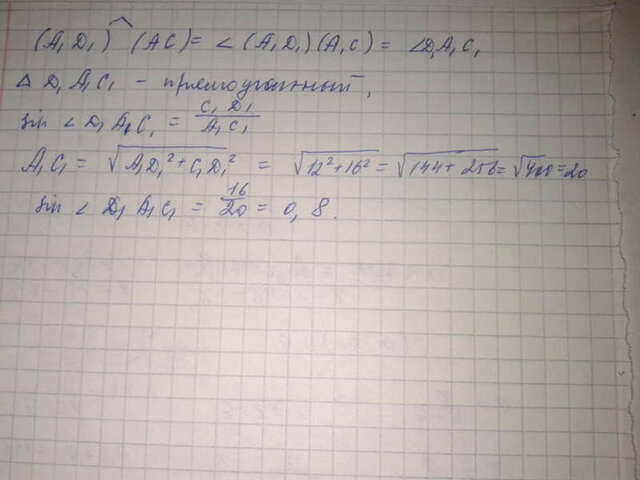 (A₁D₁)^(AC) = ∠(A₁D₁)(A₁C) = ∠D₁A₁C₁
△ D₁A₁C₁ - прямоугольный,
sin ∠ D₁A₁C₁ = C₁D₁ / A₁C₁
A₁C₁ = √(A₁D₁² + C₁D₁²) = √(12² + 16²) = √(144 + 256) = √400 = 20
sin ∠ D₁A₁C₁ = 16/20 = 0,8.